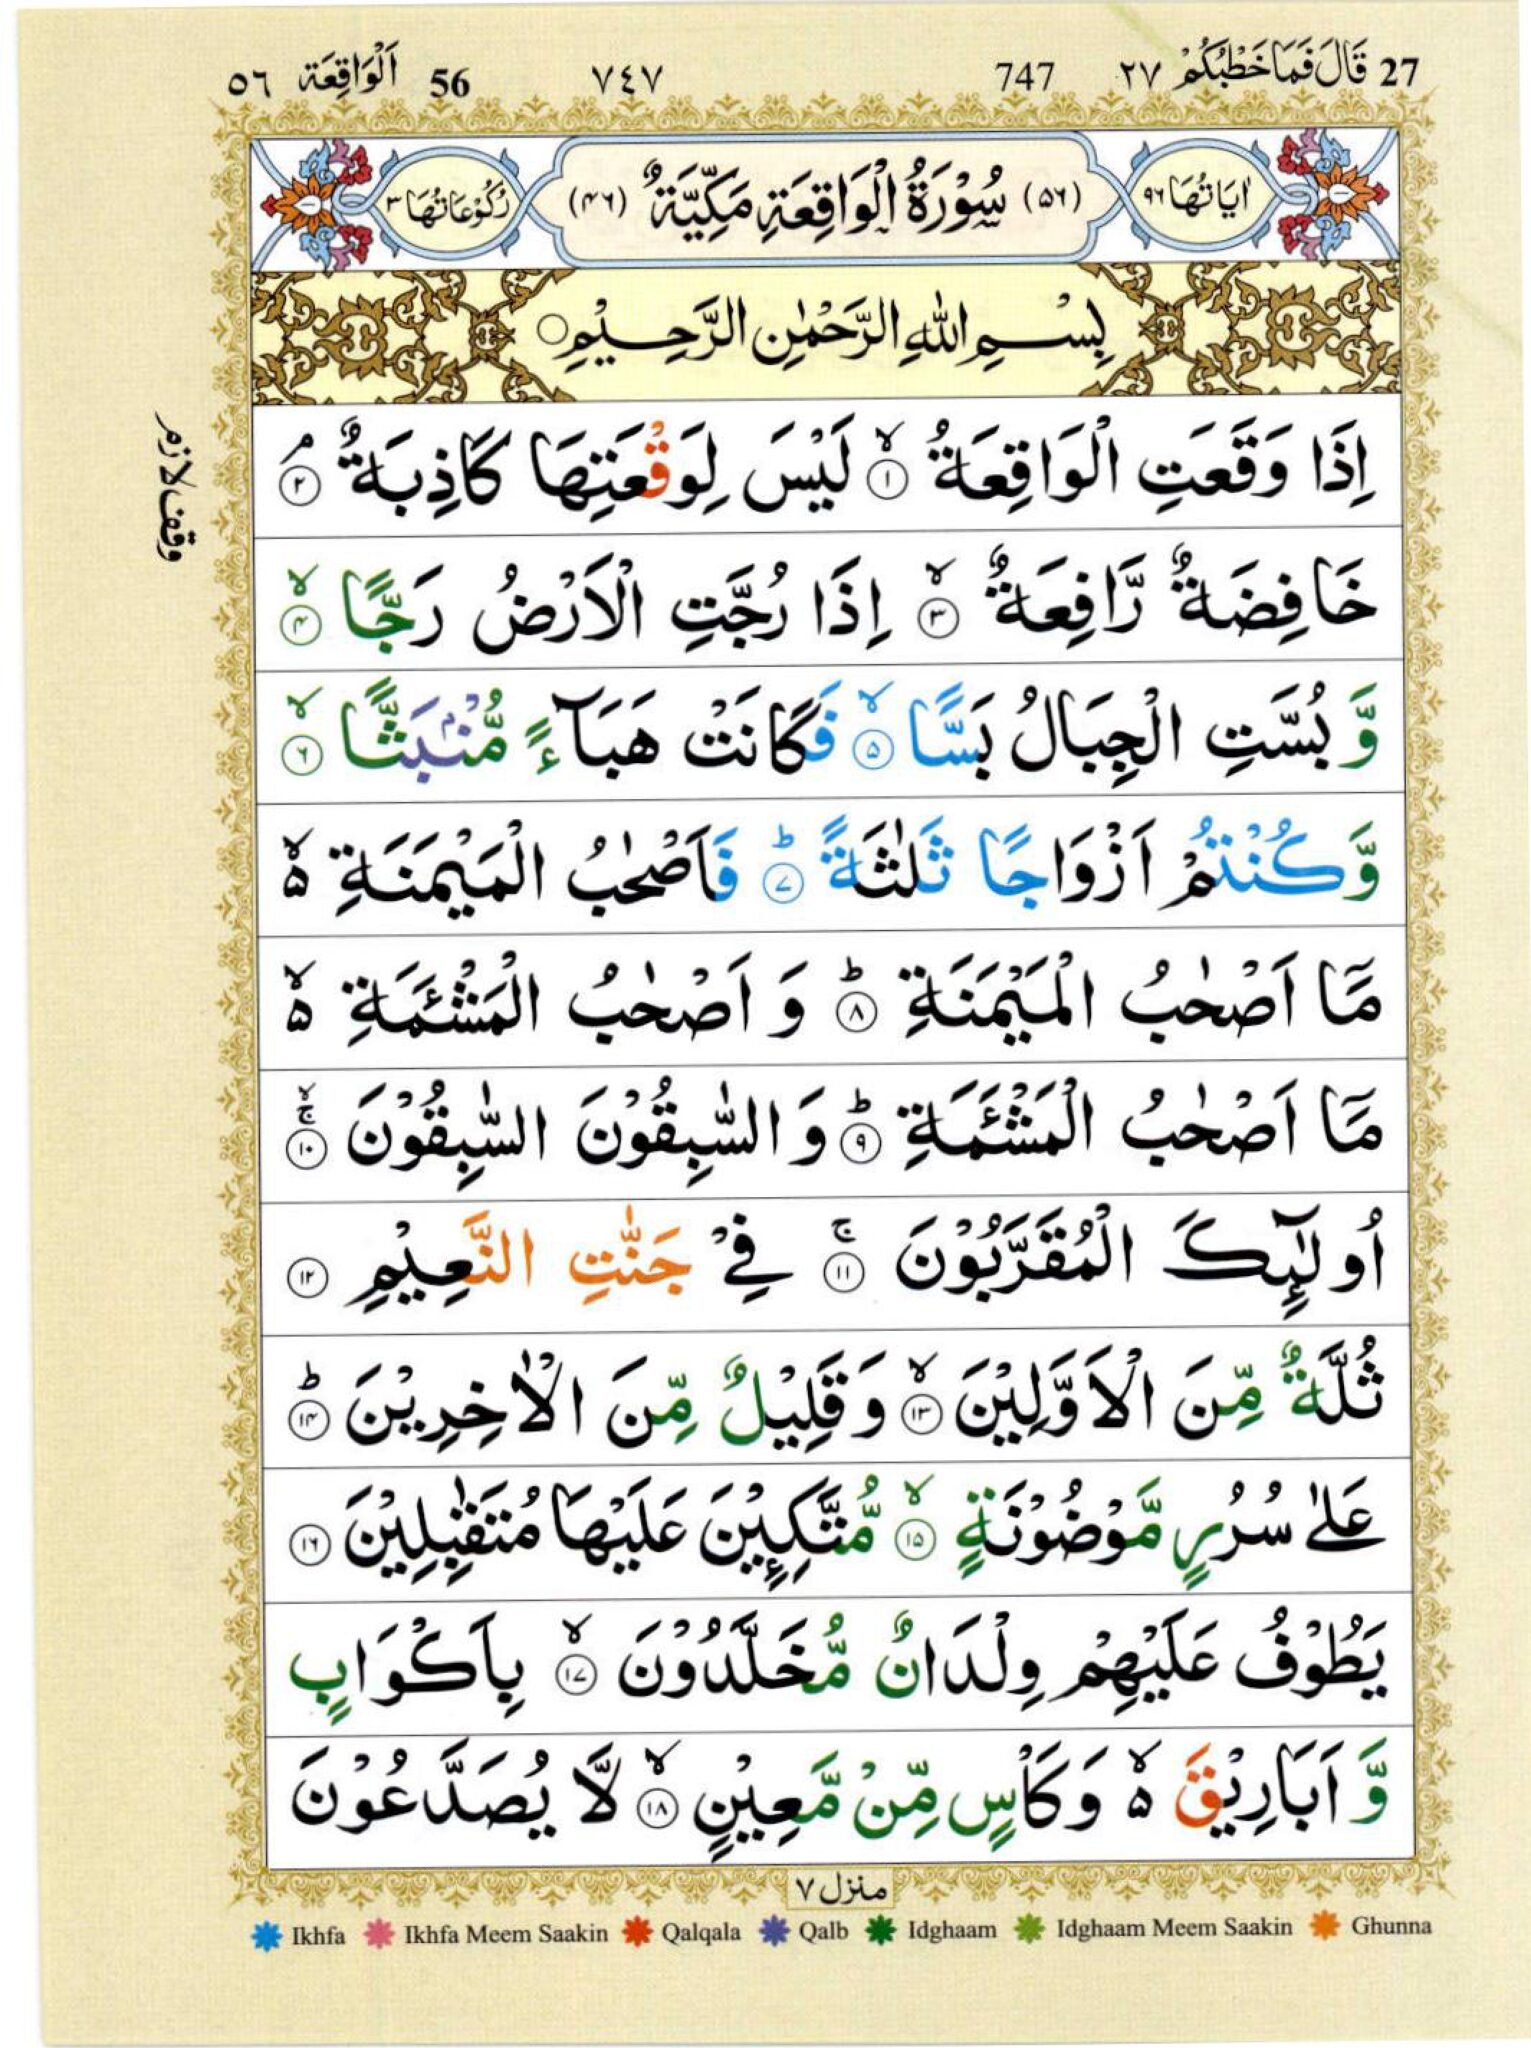 27 قَالَ فَمَا خَطْبُكُمْ ٢٧ 747 ٧٤٧ 56 اَلْوَاقِعَة ٥٦
اٰيَاتُهَا ٩٦ (٥٦) سُوْرَةُ الْوَاقِعَةِ مَكِّيَّةٌ (٤٦) رُكُوْعَاتُهَا ٣
بِسْمِ اللّٰهِ الرَّحْمٰنِ الرَّحِيْمِ
اِذَا وَقَعَتِ الْوَاقِعَةُ ۙ‏﴿۱﴾ لَيْسَ لِوَقْعَتِهَا كَاذِبَةٌ ۘ‏﴿۲﴾
وقف لازم
خَافِضَةٌ رَّافِعَةٌ ۙ‏﴿۳﴾ اِذَا رُجَّتِ الْاَرْضُ رَجًّا ۙ‏﴿۴﴾
وَّ بُسَّتِ الْجِبَالُ بَسًّا ۙ‏﴿۵﴾ فَكَانَتْ هَبَآءً مُّنْۢبَثًّا ۙ‏﴿۶﴾
وَّكُنْتُمْ اَزْوَاجًا ثَلٰثَةً ؕ‏﴿۷﴾ فَاَصْحٰبُ الْمَيْمَنَةِ ۙ۵
مَآ اَصْحٰبُ الْمَيْمَنَةِ ؕ‏﴿۸﴾ وَ اَصْحٰبُ الْمَشْـَٔمَةِ ۙ۵
مَآ اَصْحٰبُ الْمَشْـَٔمَةِ ؕ‏﴿۹﴾ وَ السّٰبِقُوْنَ السّٰبِقُوْنَ ۚۙ‏﴿۱۰﴾
اُولٰٓئِكَ الْمُقَرَّبُوْنَ ۚ‏﴿۱۱﴾ فِيْ جَنّٰتِ النَّعِيْمِ ﴿۱۲﴾
ثُلَّةٌ مِّنَ الْاَوَّلِيْنَ ۙ‏﴿۱۳﴾ وَ قَلِيْلٌ مِّنَ الْاٰخِرِيْنَ ؕ‏﴿۱۴﴾
عَلٰى سُرُرٍ مَّوْضُوْنَةٍ ۙ‏﴿۱۵﴾ مُّتَّكِـِٕيْنَ عَلَيْهَا مُتَقٰبِلِيْنَ ﴿۱۶﴾
يَطُوْفُ عَلَيْهِمْ وِلْدَانٌ مُّخَلَّدُوْنَ ۙ‏﴿۱۷﴾ بِاَكْوَابٍ
وَّ اَبَارِيْقَ ۙ۵ وَ كَاْسٍ مِّنْ مَّعِيْنٍ ۙ‏﴿۱۸﴾ لَّا يُصَدَّعُوْنَ
منزل ٧
Ikhfa Ikhfa Meem Saakin Qalqala Qalb Idghaam Idghaam Meem Saakin Ghunna